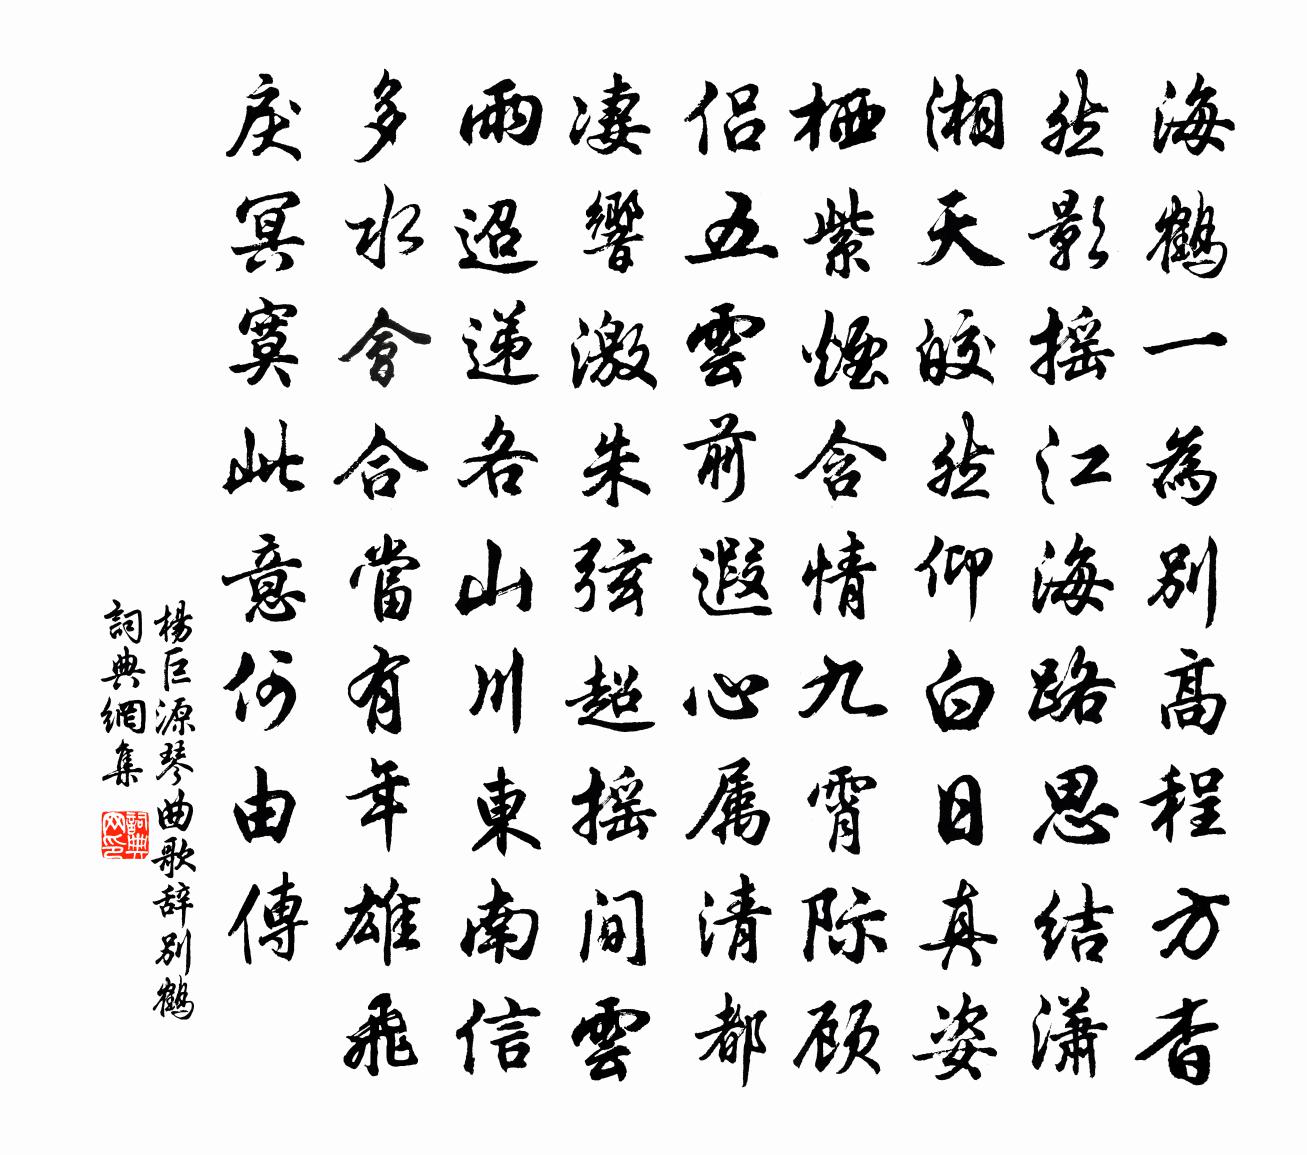 海鶴一為别高程方杳
然影摇江海路思结潇
湘天皎然仰白日真姿
栖紫煙含情九霄际顾
侣五雲前遐心属清都
凄響激朱弦超摇间雲
雨迢递各山川東南信
多水會合當有年雄飛
戾冥寞此意何由傳
楊巨源琴曲歌辞别鶴
詞典網集
詞典网印